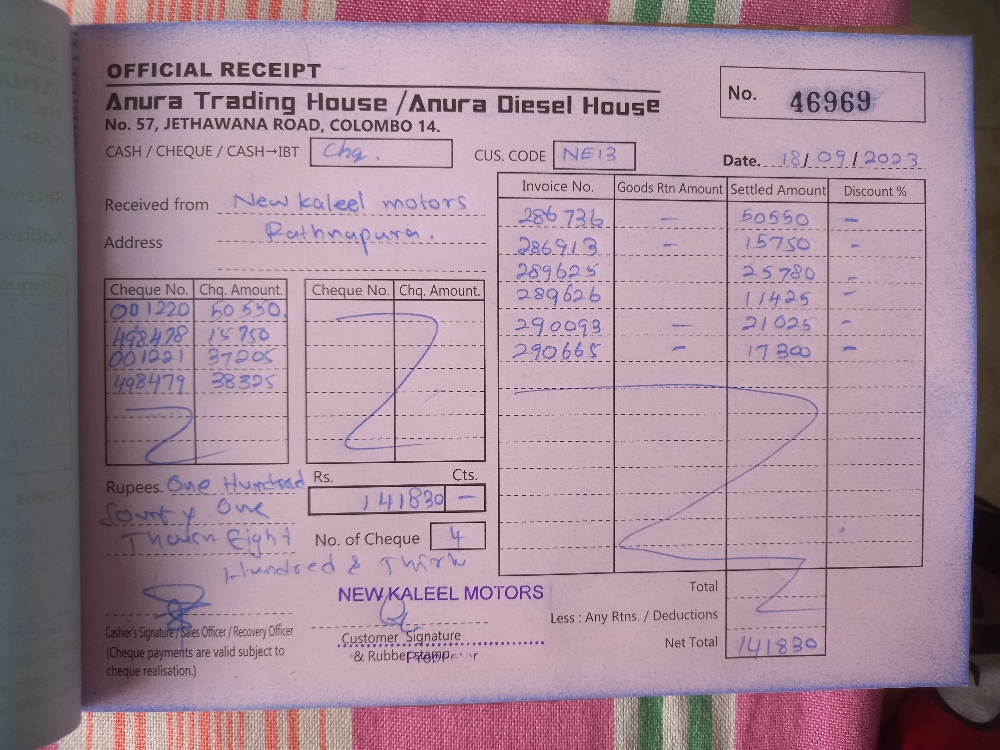 OFFICIAL RECEIPT
Anura Trading House / Anura Diesel House
No. 57, JETHAWANA ROAD, COLOMBO 14.
No. 46969
CASH / CHEQUE / CASH→IBT Chq.
CUS. CODE NE13
Date. 18/09/2023
Received from New kaleel motors
Address Rathnapura.
Cheque No. Chq. Amount.
001220 50550
498478 15750
001221 37205
498479 38325
Cheque No. Chq. Amount.
Invoice No. Goods Rtn Amount Settled Amount Discount %
286736 — 50550 —
286913 — 15750 -
289625 25780 -
289626 11425 -
290093 — 21025 -
290665 — 17300 —
Rupees. One Hundred
fourty One
Eight
Hundred &
Rs. Cts.
141830 —
No. of Cheque 4
NEW KALEEL MOTORS
Cashier's Signature / Sales Officer / Recovery Officer
(Cheque payments are valid subject to
cheque realisation.)
Customer Signature
& Rubber stamp
Total
Less : Any Rtns. / Deductions
Net Total 141830